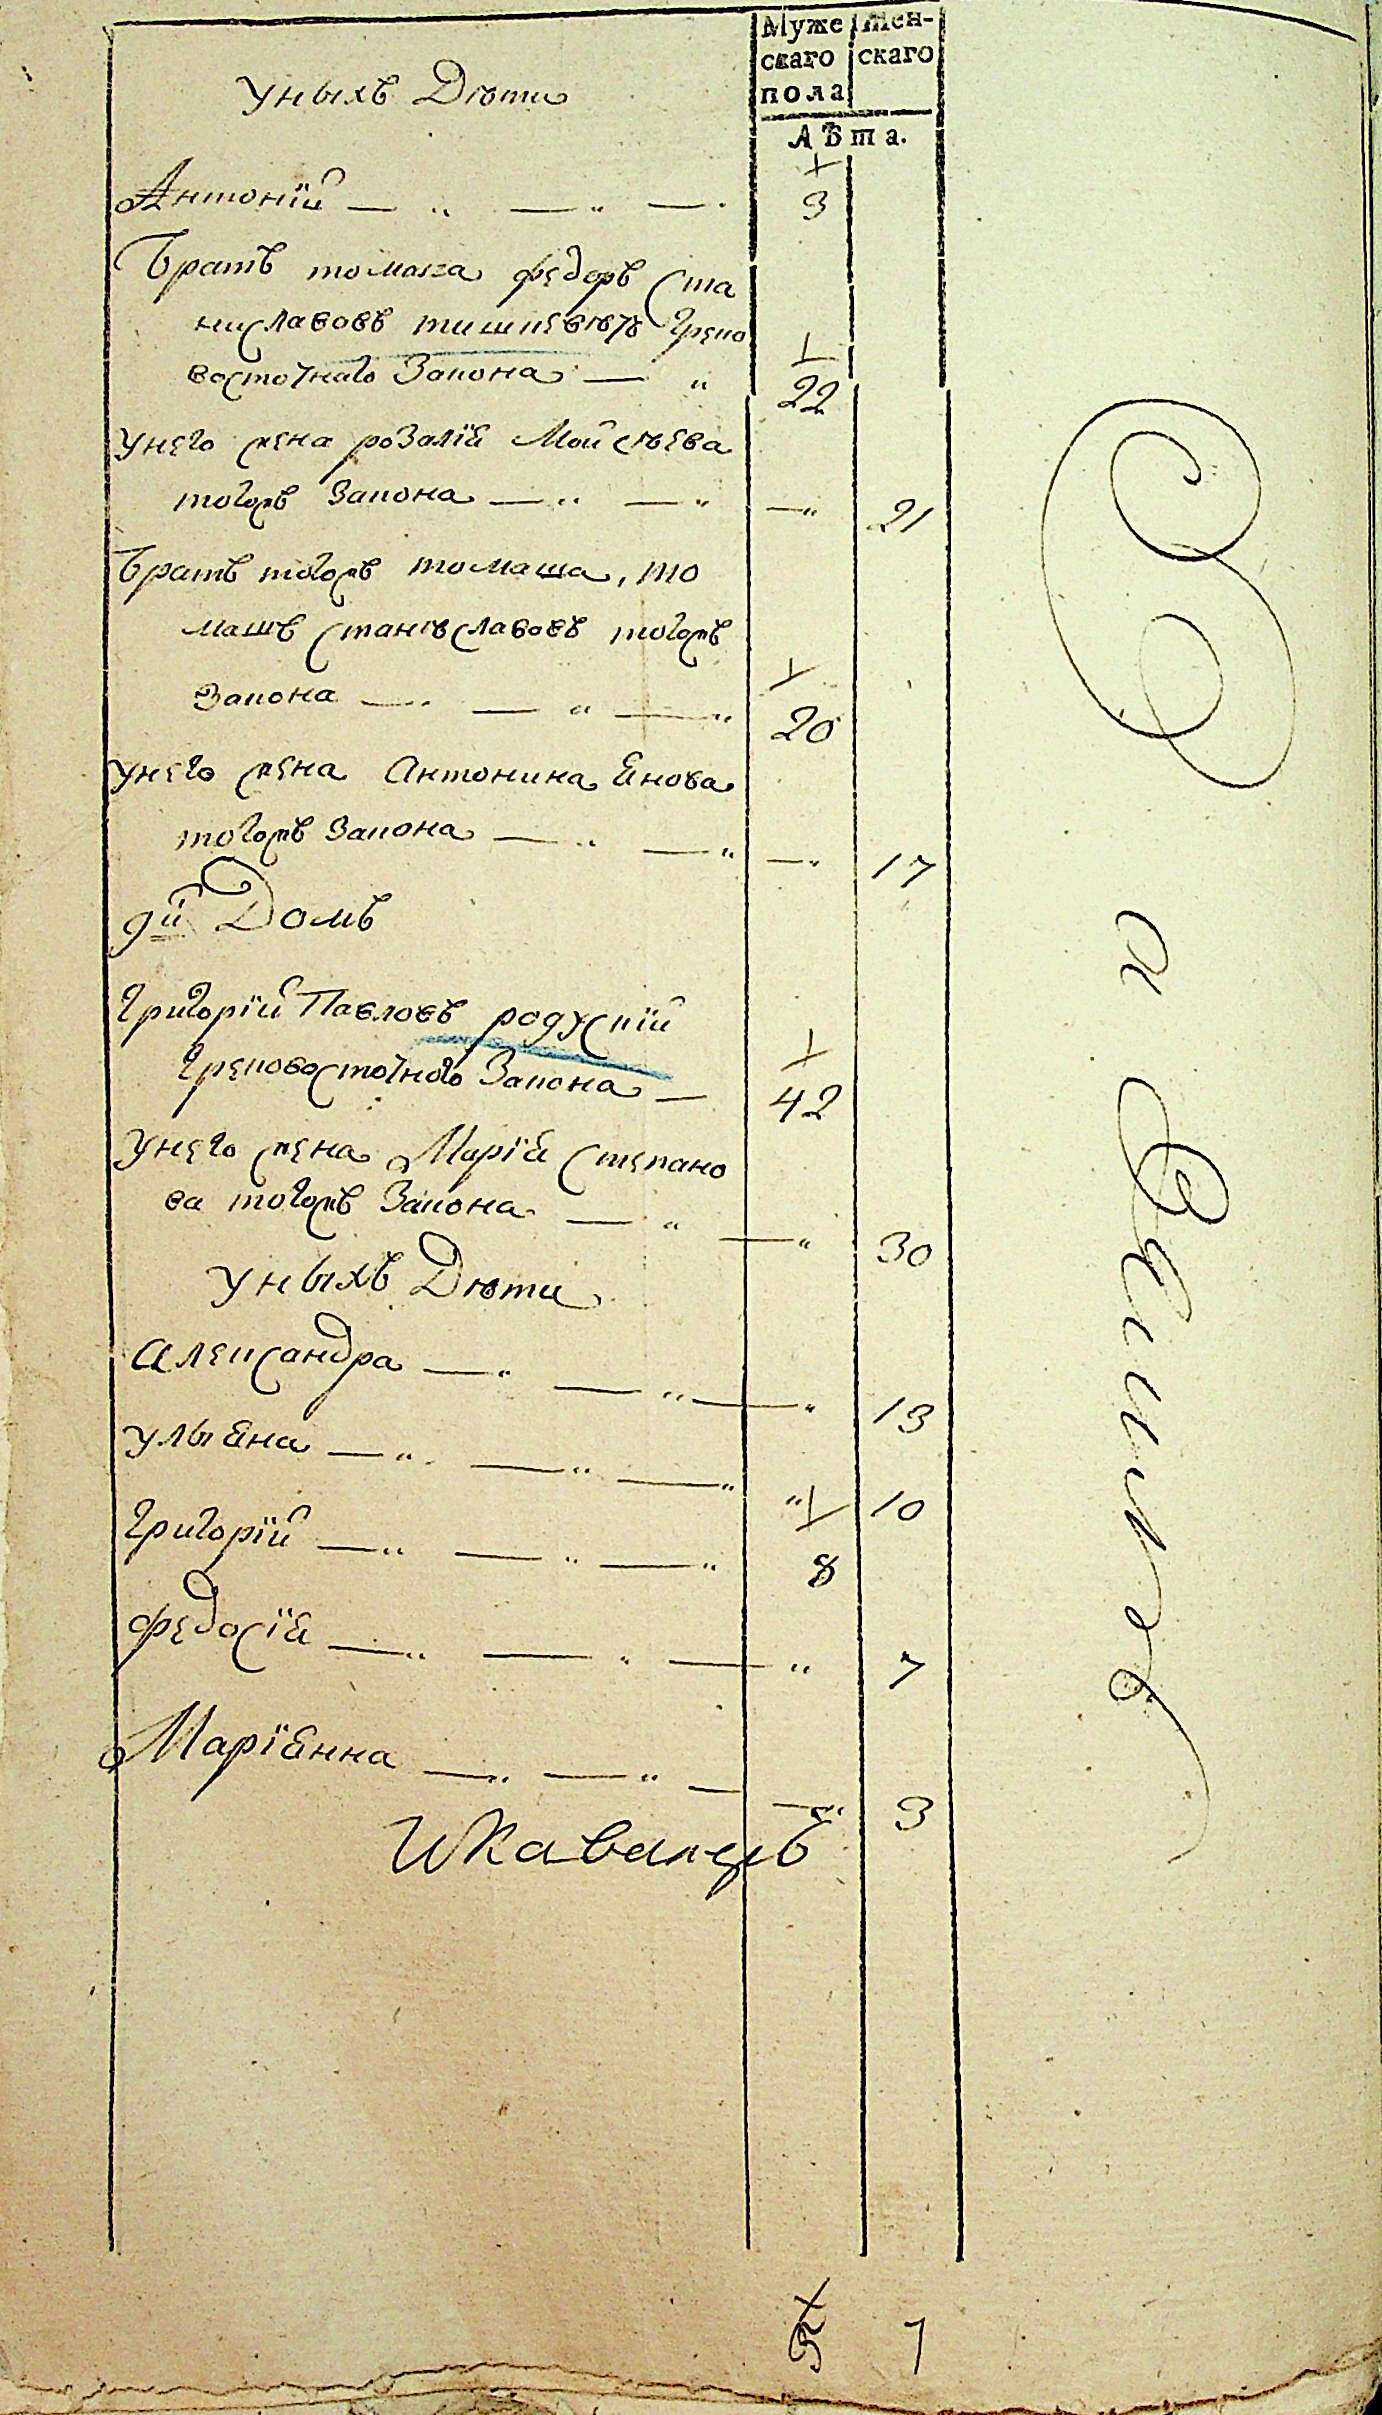 Муже Жен-
скаго скаго
пола
Лѣта.
У ныхъ Дѣти
Антонїй — „ — „ — . 3
Братъ томаша федоръ Ста
ниславовъ тишкевичъ Греко
восточнаго Закона — „ 22
У него жена розалїя Мойсѣева
тогожъ Закона — „ — „ — „ 21
Братъ тогожъ томаша, то
машъ Станѣславовъ тогожъ
Закона — „ — „ — „ 20
У него жена Антонина Янова
тогожъ Закона — „ — „ — „ 17
9й Домъ
Григорїй Павловъ
Грековосточного Закона — 42
У него жена Марїя Степано
ва тогожъ Закона — „ — „ 30
У ныхъ Дѣти
Александра — „ — „ — „ 13
Улыяна — „ — „ — „ „ 10
Григорїй — „ — „ — „ 8
Федосїя — „ — „ — „ 7
Марїянна — „ — „ — — „ 3
5 7